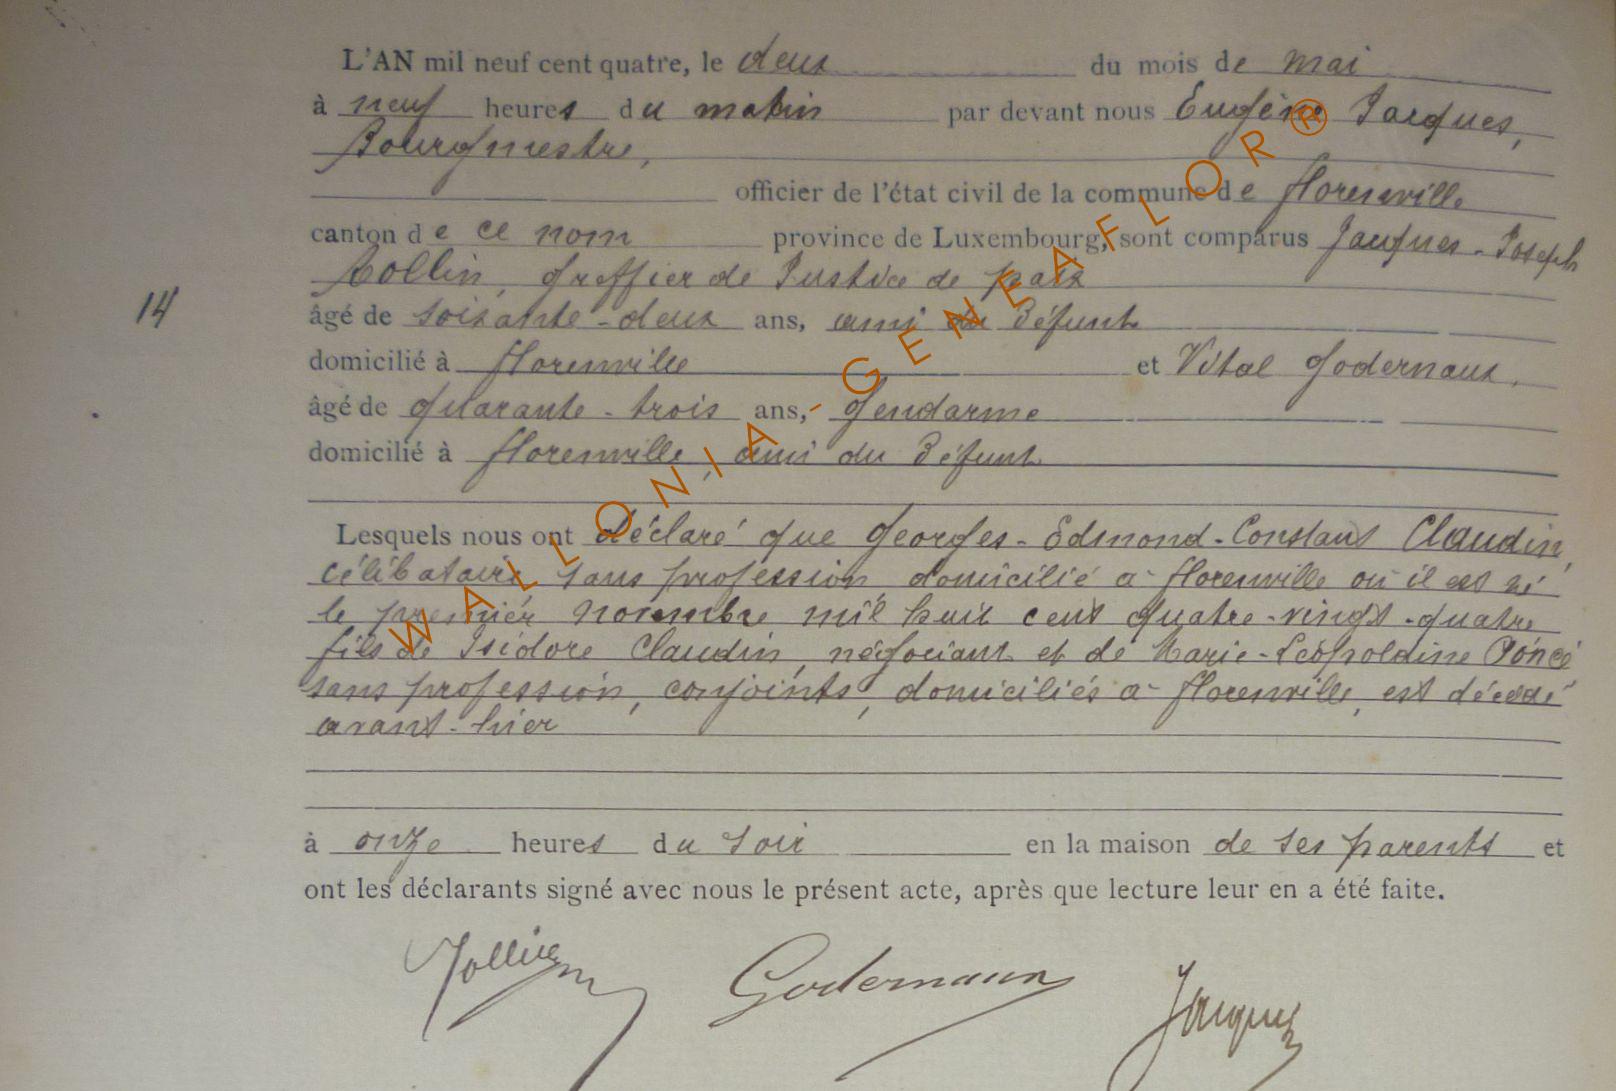 L'AN mil neuf cent quatre, le deux du mois de mai
à neuf heures du matin par devant nous Eugène Jacques,
Bourgmestre,
officier de l'état civil de la commune de florenville
canton de ce nom province de Luxembourg, sont comparus Jacques-Joseph
greffier de Justice de paix
14
âgé de soixante-deux ans, ami du Défunt
domicilié à florenville et Vital Godernaux,
âgé de quarante-trois ans, gendarme
domicilié à florenville, ami du Défunt
Lesquels nous ont déclaré que Georges-Edmond-Constant Claudin,
célibataire, sans profession, domicilié à florenville où il est né
le premier novembre mil huit cent quatre-vingt-quatre
fils de Isidore Claudin, négociant et de Marie-Léopoldine Poncé
sans profession, conjoints, domiciliés à florenville, est décédé
avant-hier
à onze heures du soir en la maison de ses parents et
ont les déclarants signé avec nous le présent acte, après que lecture leur en a été faite.
Godernaux Jacques
WALLONIA-GENEAFLOR®